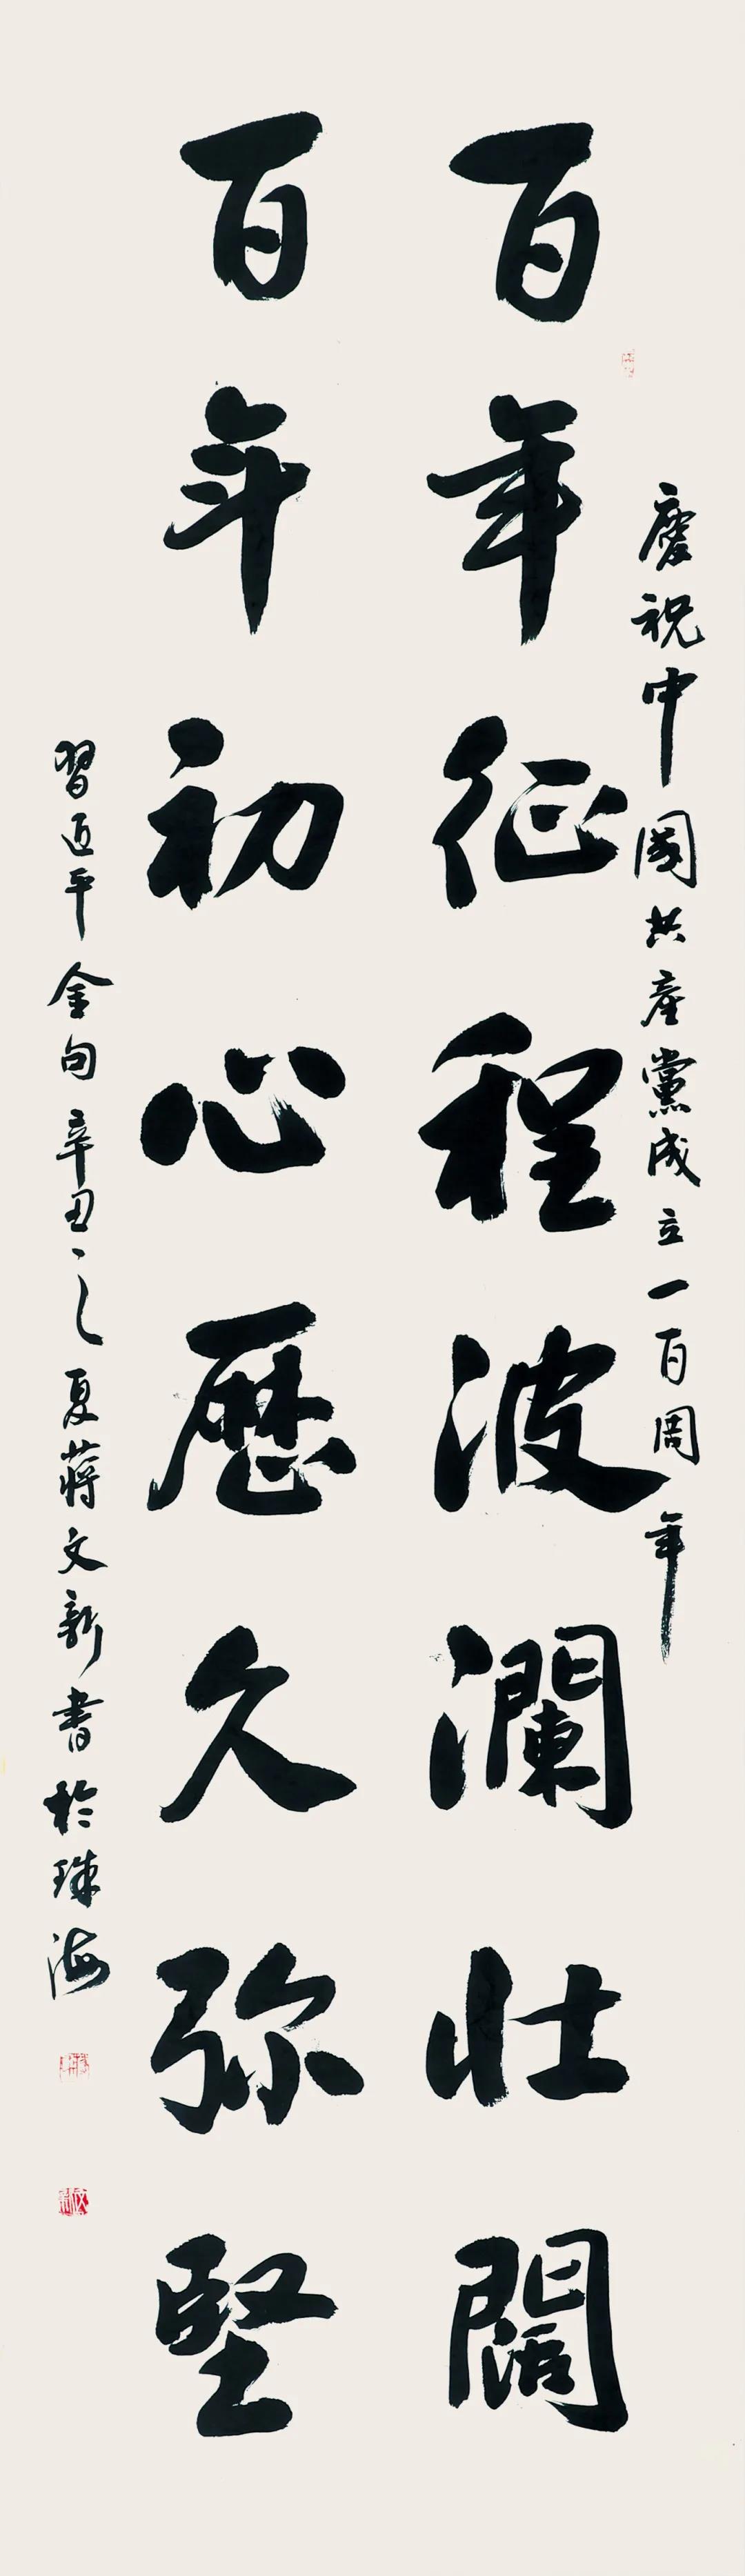 慶祝中國共產黨成立一百周年
百年征程波瀾壯闊
百年初心歷久弥堅
習近平金句辛丑之夏蔣文新書於珠海